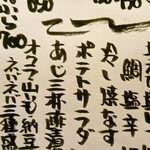 鯛塩辛
冷し焼なす
ポテトサラダ
あじ三杯酢漬
オクラ山芋納豆
ネバネバ三種盛
650
700